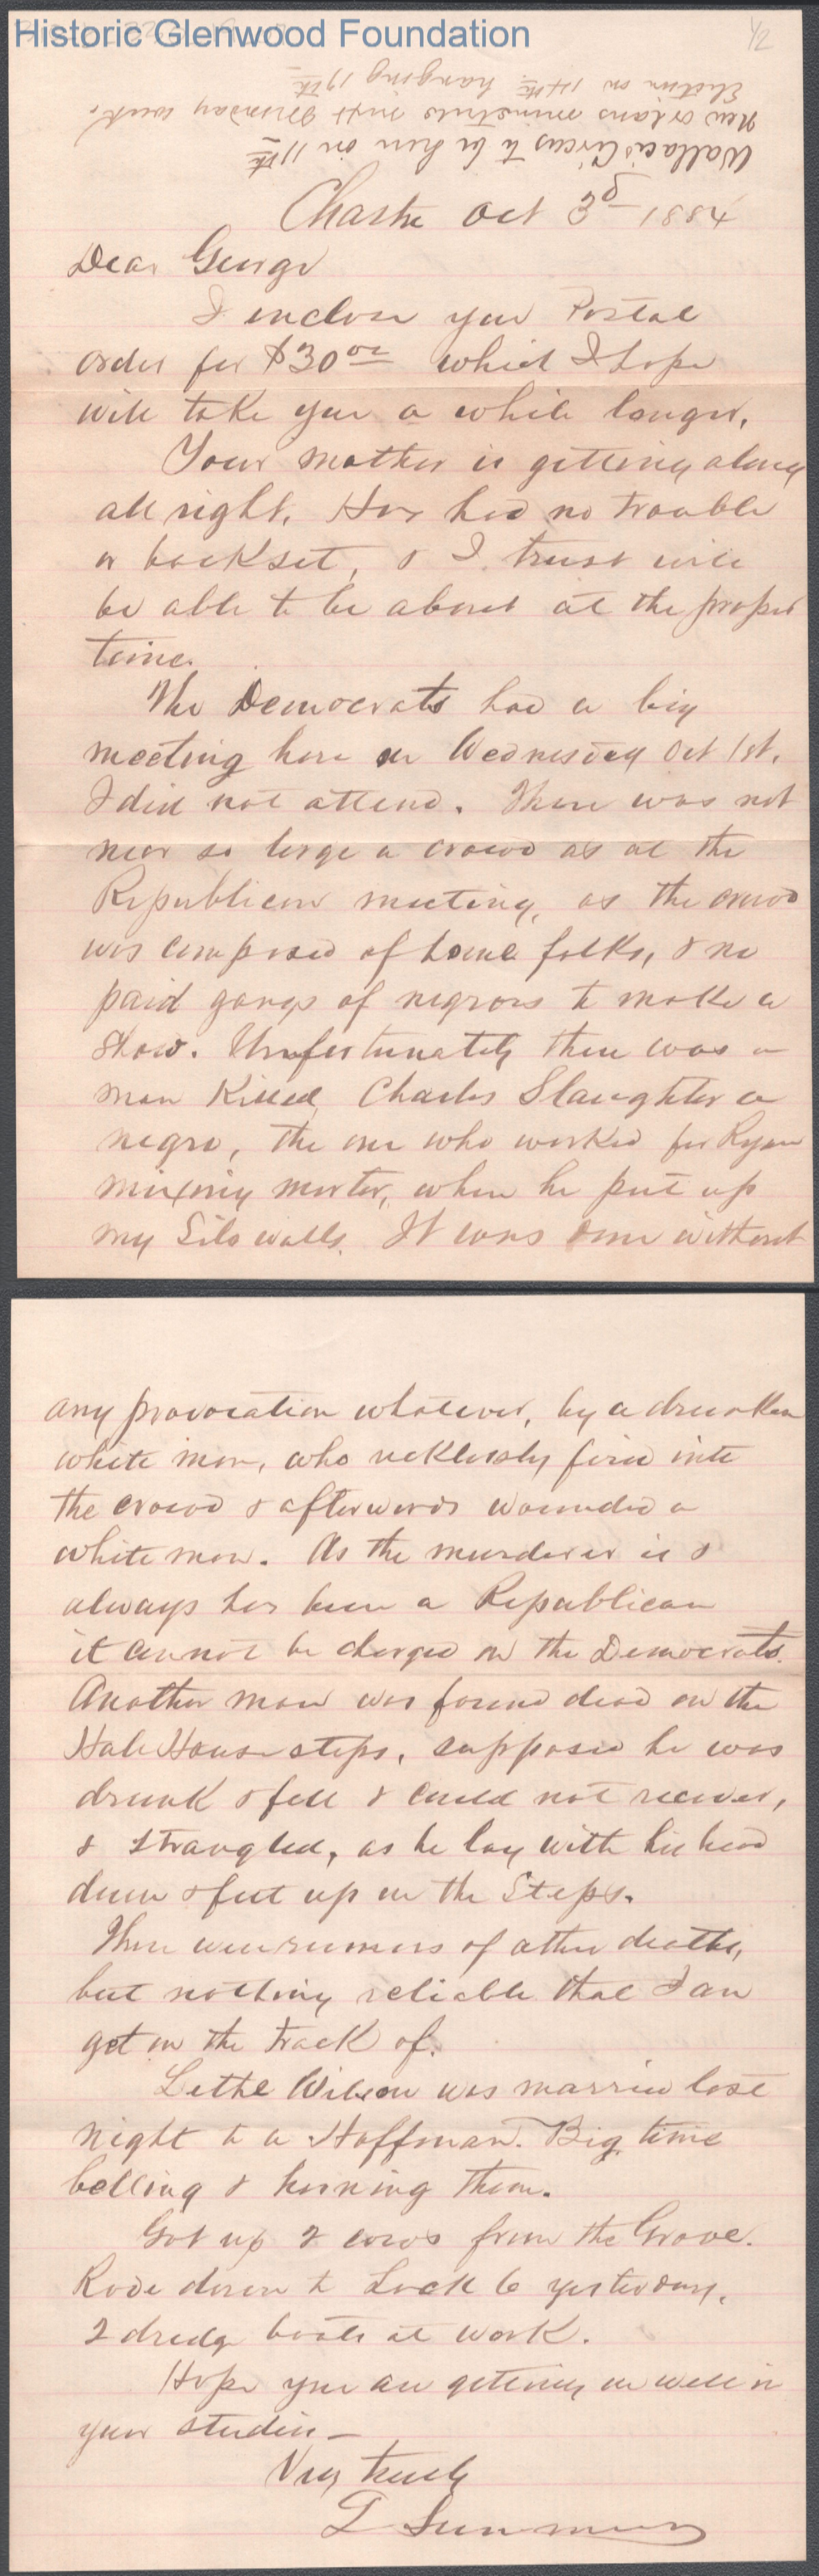 Historic Glenwood Foundation
1/2
Wallace Circus to be here on 11th
New orleans minstrels next Monday week.
Election on 14th hanging 17th
Chastn Oct 3d - 1884
Dear George
I enclose you Postal
order for $30 00 which I hope
will take you a while longer.
Your mother is getting along
all right. Has had no trouble
or backset, & I trust will
be able to be about at the proper
time.
The Democrats had a big
meeting here on Wednesday Oct 1st.
I did not attend. There was not
near so large a crowd as at the
Republican meeting, as the crowd
was composed of home folks, & no
paid gangs of negroes to make a
show. Unfortunately there was a
man Killed, Charles Slaughter a
negro, the one who worked for Ryan
mixing morter, when he put up
my Silo walls. It was done without
any provocation whatever, by a drunken
white man, who recklessly fired into
the crowd & afterwards wounded a
white man. As the murderer is &
always has been a Republican
it cannot be charged on the Democrats.
Another man was found dead on the
Hale House steps, supposed he was
drunk & fell & could not recover,
& strangled, as he lay with his head
down & feet up on the Steps.
There were rumors of other deaths,
but nothing reliable that I can
get on the track of.
Lethe Wilson was married last
night to a Hoffman. Big time
belling & horning them.
Got up 2 cows from the Grove.
Rode down to Lock 6 yesterday.
2 dredge boats at work.
Hope you are getting on well in
your studies -
Very truly
L Summers